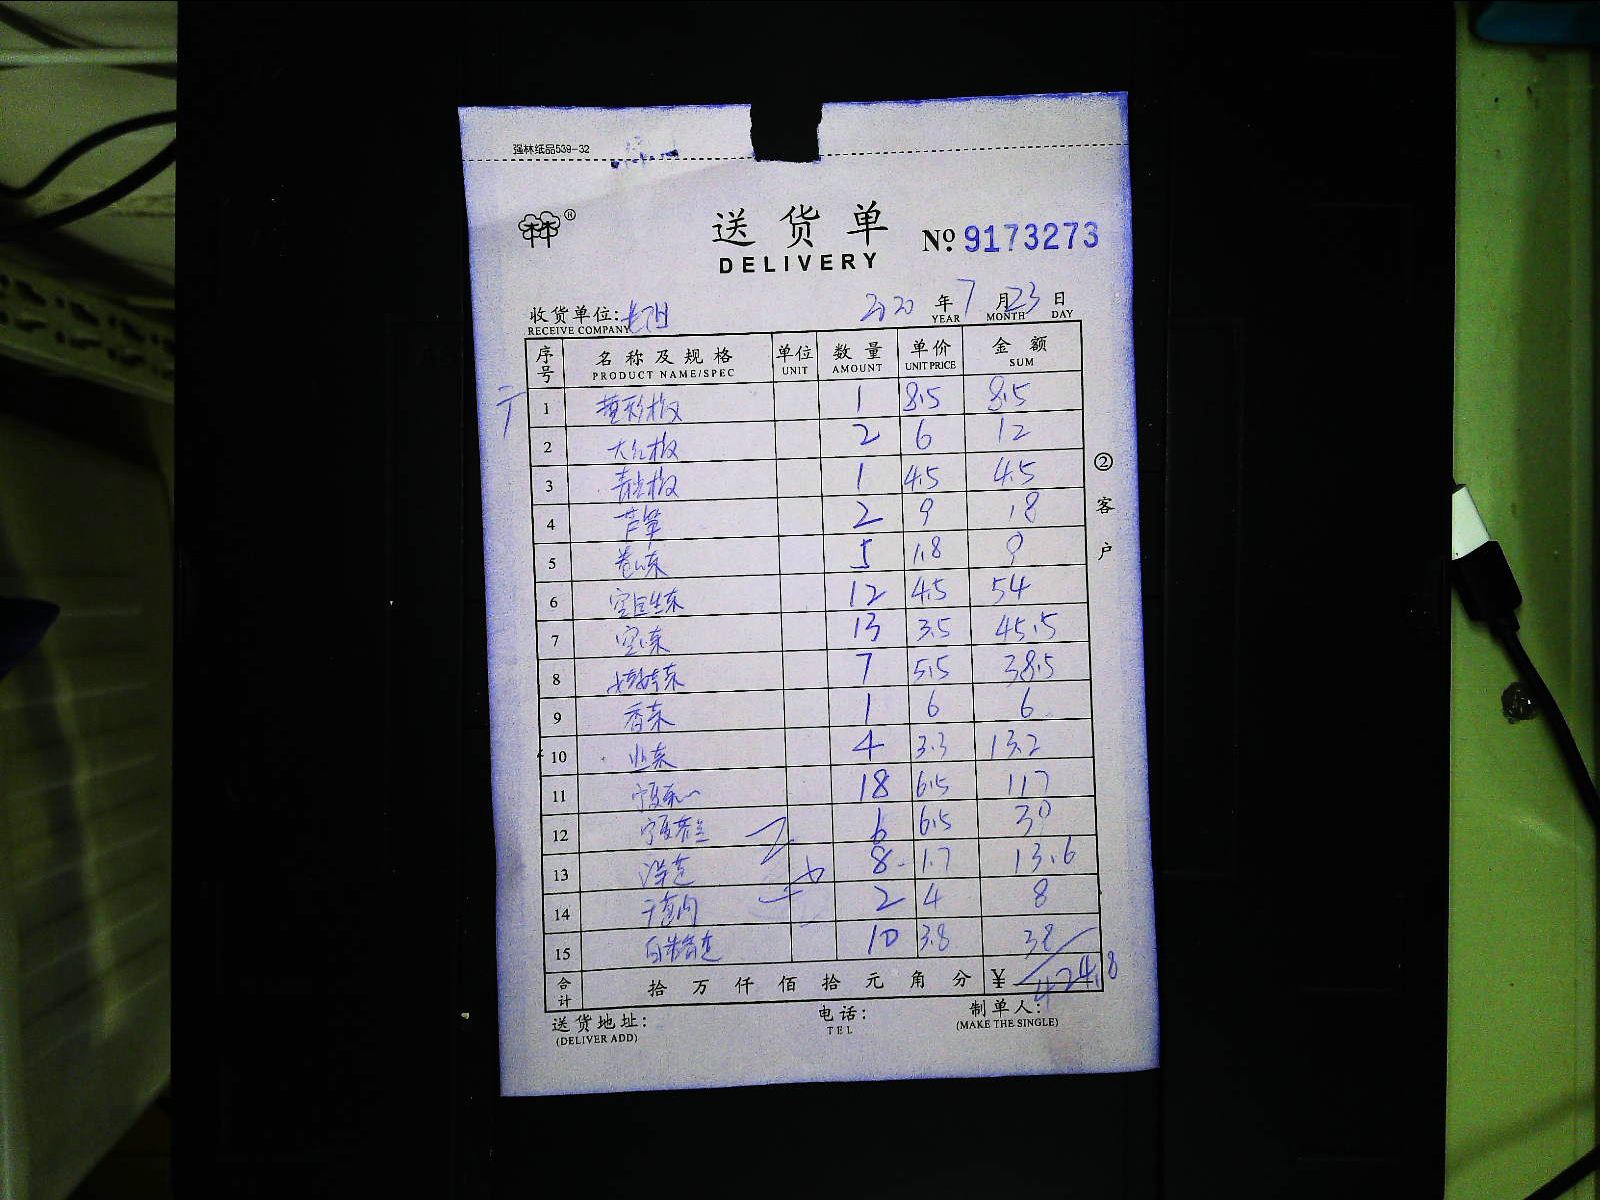 强林纸品539-32
林®
送货单 Nº 9173273
DELIVERY
收货单位: 2020年7月23日
RECEIVE COMPANY YEAR MONTH DAY
序号 名称及规格 单位 数量 单价 金额
PRODUCT NAME/SPEC UNIT AMOUNT UNIT PRICE SUM
1 黄彩椒 1 8.5 8.5
2 大红椒 2 6 12
3 青尖椒 1 4.5 4.5
4 芦笋 2 9 18
5 5 1.8 9
6 12 4.5 54
7 空菜 13 3.5 45.5
8 7 5.5 38.5
9 香菜 1 6 6
10 韭菜 4 3.3 13.2
11 宁夏菜心 18 6.5 117
12 6 6.5 39
13 洋芝 8 1.7 13.6
14 2 4 8
15 10 3.8 38
合计 拾万仟佰拾元角分 ¥ 424.8
送货地址: 电话: 制单人:
(DELIVER ADD) TEL (MAKE THE SINGLE)
②客户